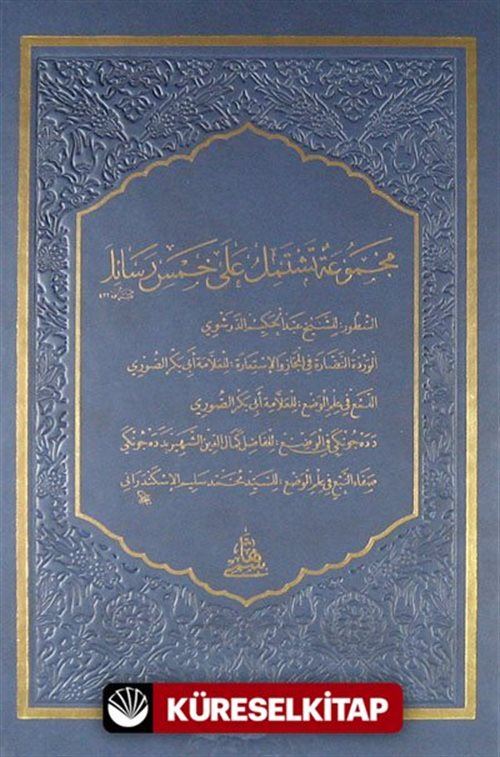 مجموعة تشتمل على خمس رسائل
السطور: للشيخ عبد الحكيم الدرشوي
الوردة النضارة في المجاز والإستعارة: للعلامة أبي بكر الصوري
اللمع في علم الوضع: للعلامة أبي بكر الصوري
دده جونكي في الوضع: للفاضل كمال الدين الشهير بدده جونكي
صفاء النبع في علم الوضع: للسيد محمد سليم الإسكندراني
هاشمي
KÜRESELKİTAP